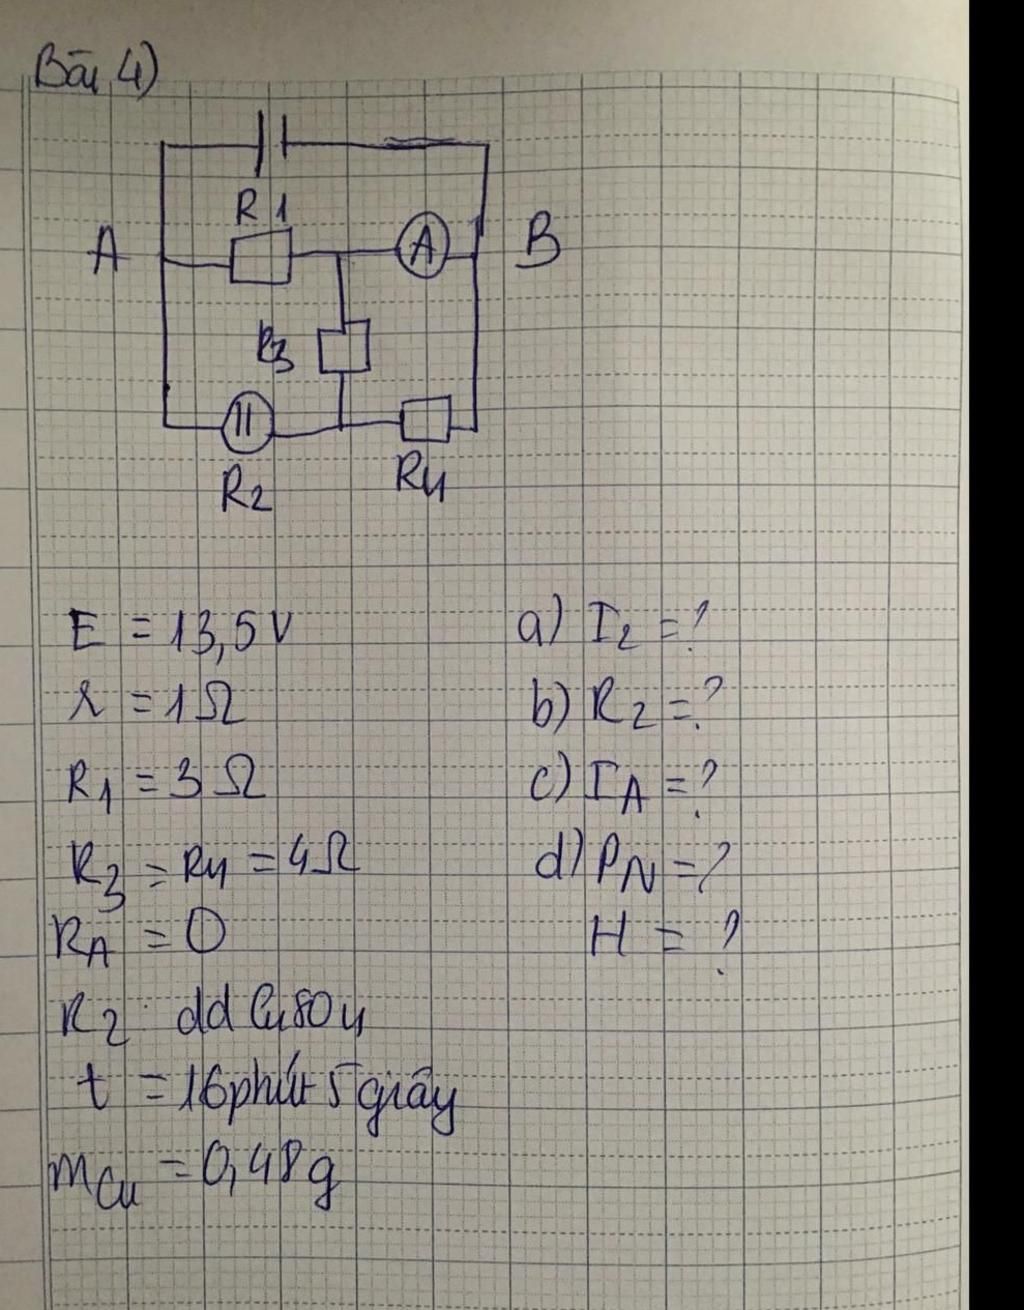 Bài 4)
R1
A
A
B
R3
R2
R4
E = 13,5 V
r = 1 Ω
R1 = 3 Ω
R3 = R4 = 4 Ω
RA = 0
R2 : dd CuSO4
t = 16phút 5 giây
mCu = 0,48g
a) I2 = ?
b) R2 = ?
c) IA = ?
d) PN = ?
H = ?